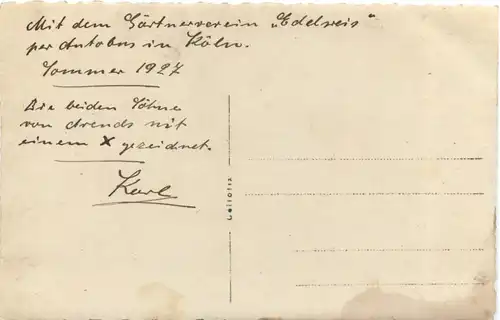 Mit dem Gärtnerverein „Edelweis"
per Autobus in Köln.
Sommer 1927
Die beiden Söhne
von Arends mit
einem X gezeichnet.
Karl
Cellofix